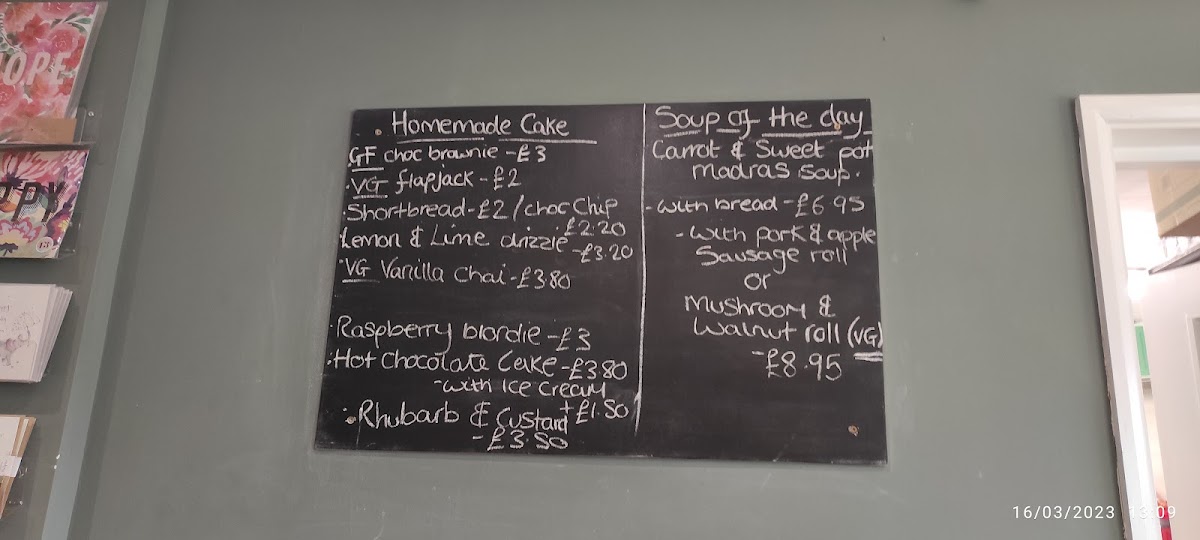 Homemade Cake
GF choc brownie - £3
· VG flapjack - £2
· Shortbread - £2 / choc chip
£2.20
Lemon & Lime drizzle
- £3.20
· VG Vanilla Chai - £3.80
· Raspberry blondie - £3
· Hot Chocolate Cake - £3.80
- with Ice cream
+ £1.50
· Rhubarb & Custard
- £3.50
Soup of the day
Carrot & Sweet pot
madras soup.
- with bread - £6.95
- with pork & apple
Sausage roll
or
Mushroom &
Walnut roll (VG)
- £8.95
OPE
PPY
16/03/2023 13:09